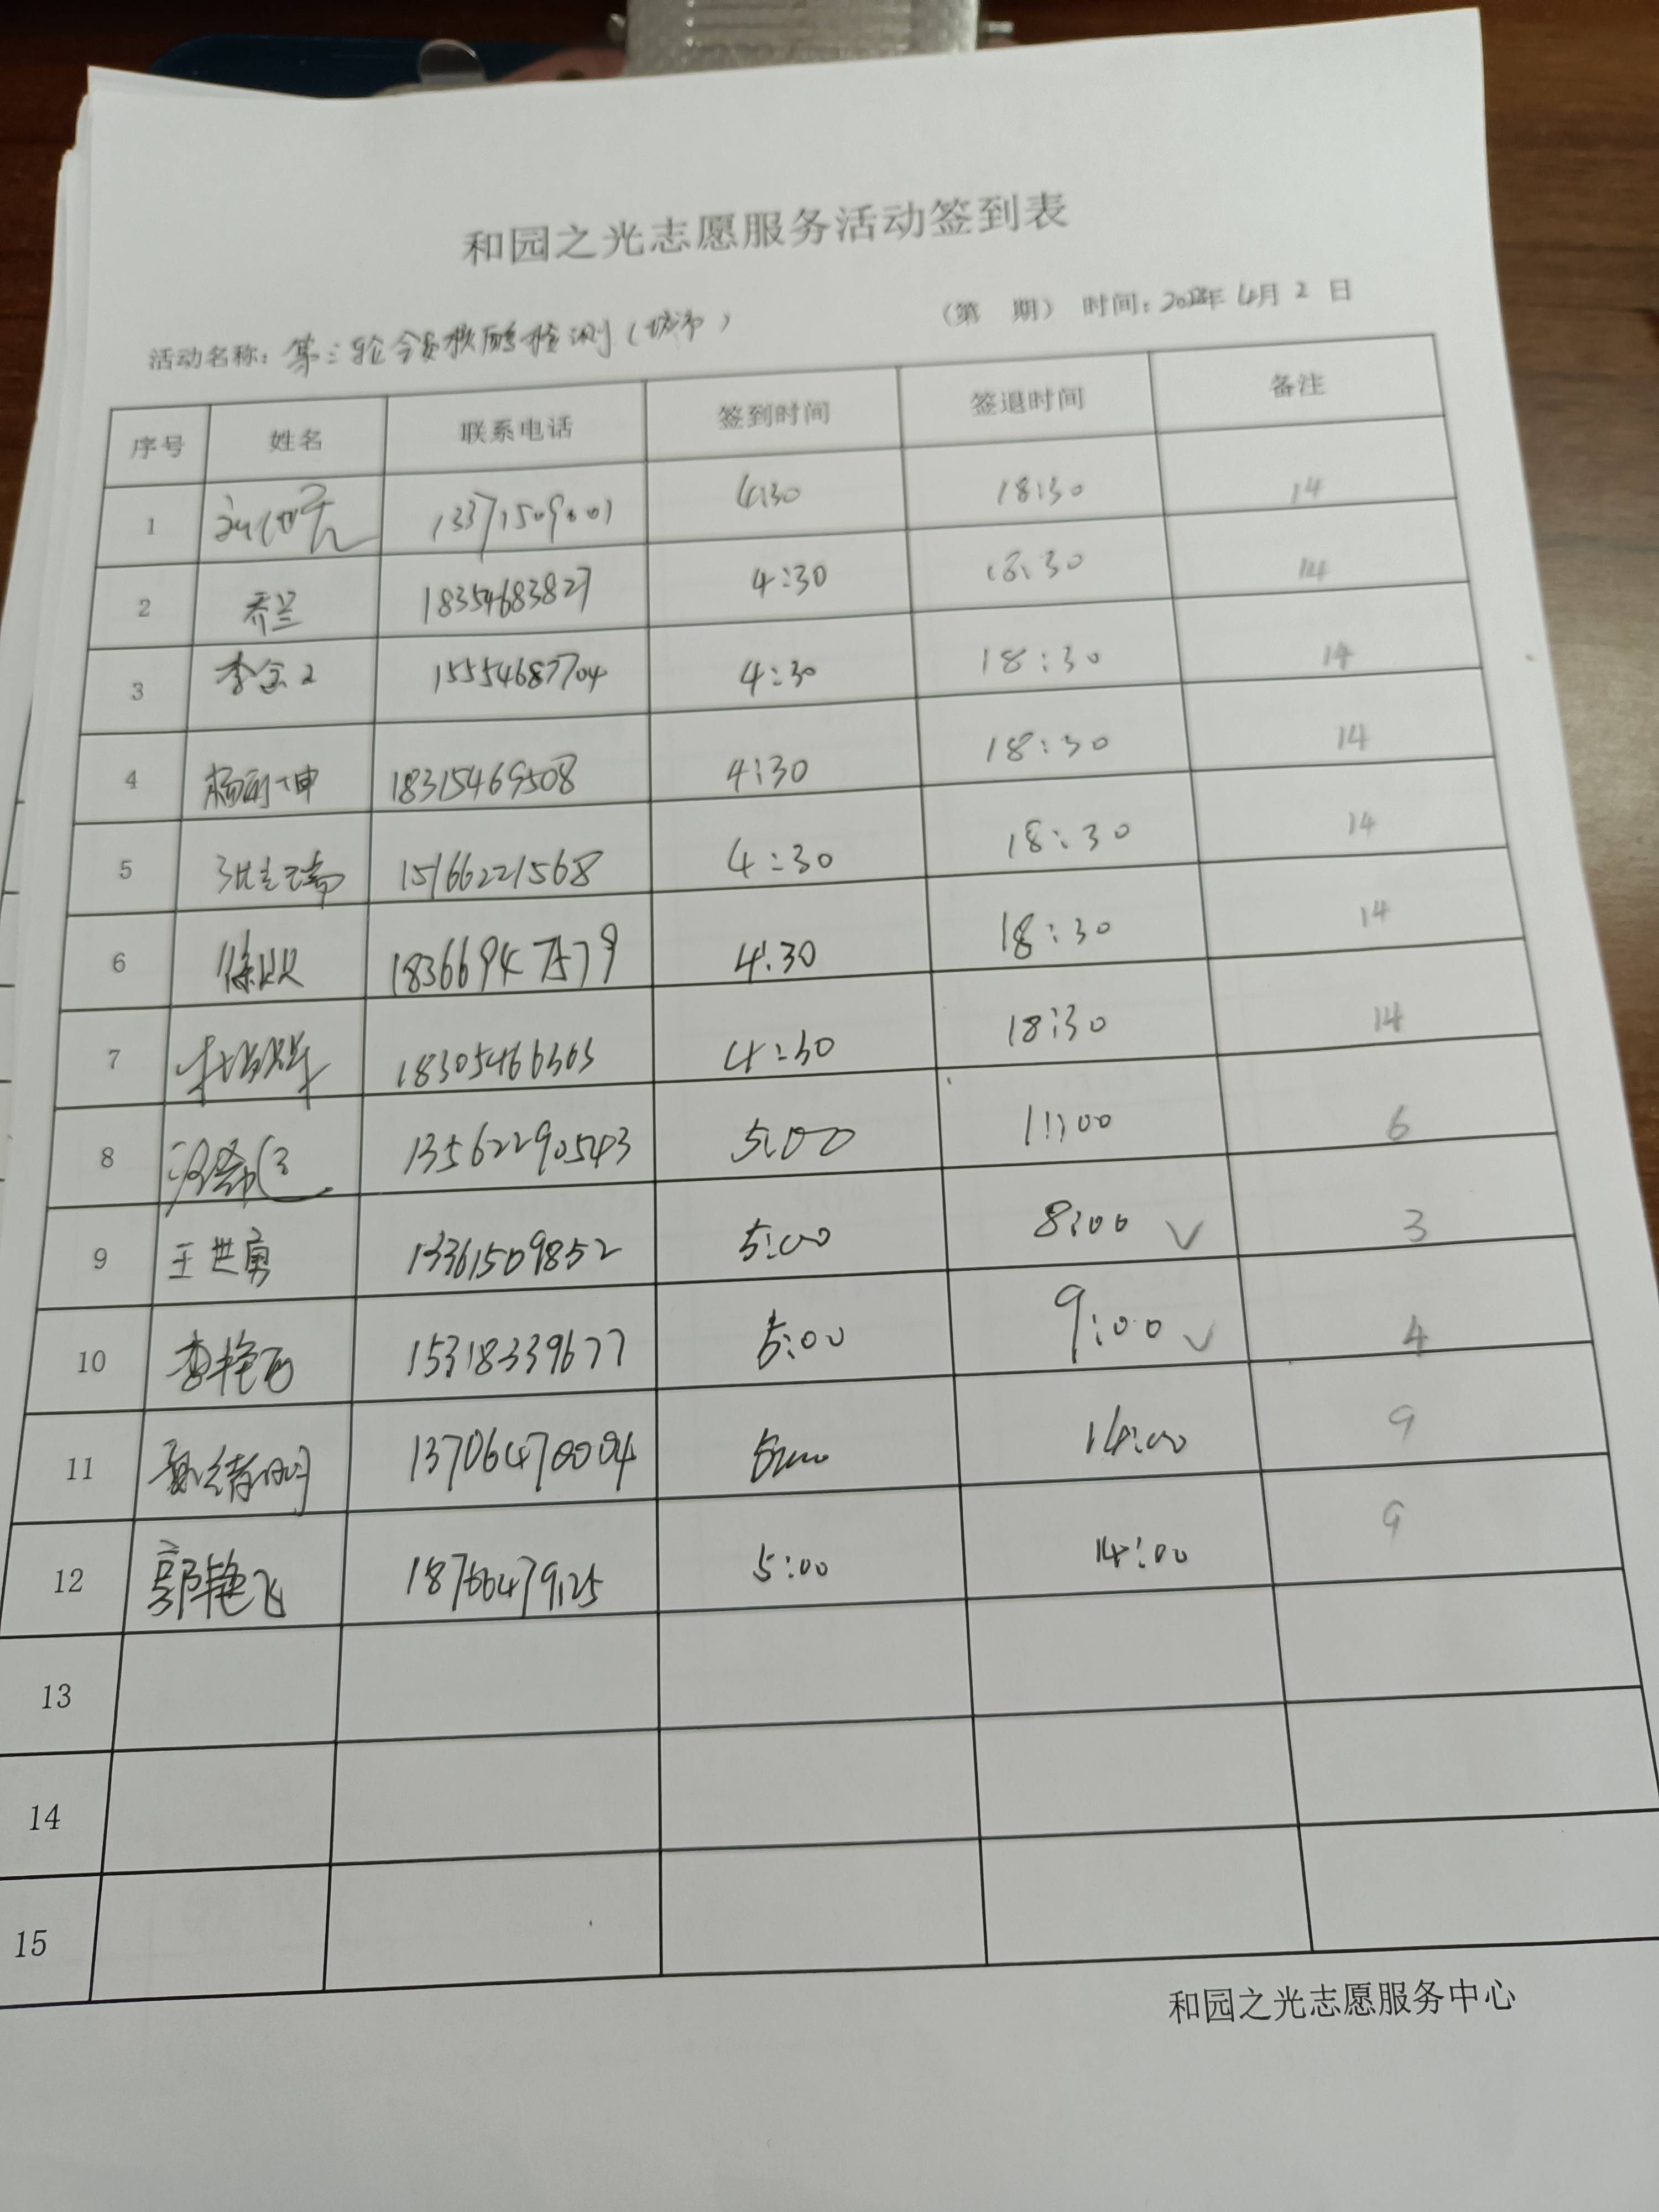 和园之光志愿服务活动签到表
(第 期) 时间: 2022年 4月 2 日
活动名称: 第三轮全员核酸检测(城市)
序号 姓名 联系电话 签到时间 签退时间 备注
1 13371509001 4:30 18:30 14
2 乔兰 18354683827 4:30 18:30 14
3 15554687704 4:30 18:30 14
4 杨丽坤 18315469508 4:30 18:30 14
5 15166221568 4:30 18:30 14
6 18366947579 4:30 18:30 14
7 18305466303 4:30 18:30 14
8 13562290543 5:00 11:00 6
9 王世勇 13361509852 5:00 8:00 √ 3
10 15318339677 5:00 9:00 √ 4
11 13706470004 5:00 14:00 9
12 郭艳飞 18766479125 5:00 14:00 9
13
14
15
和园之光志愿服务中心